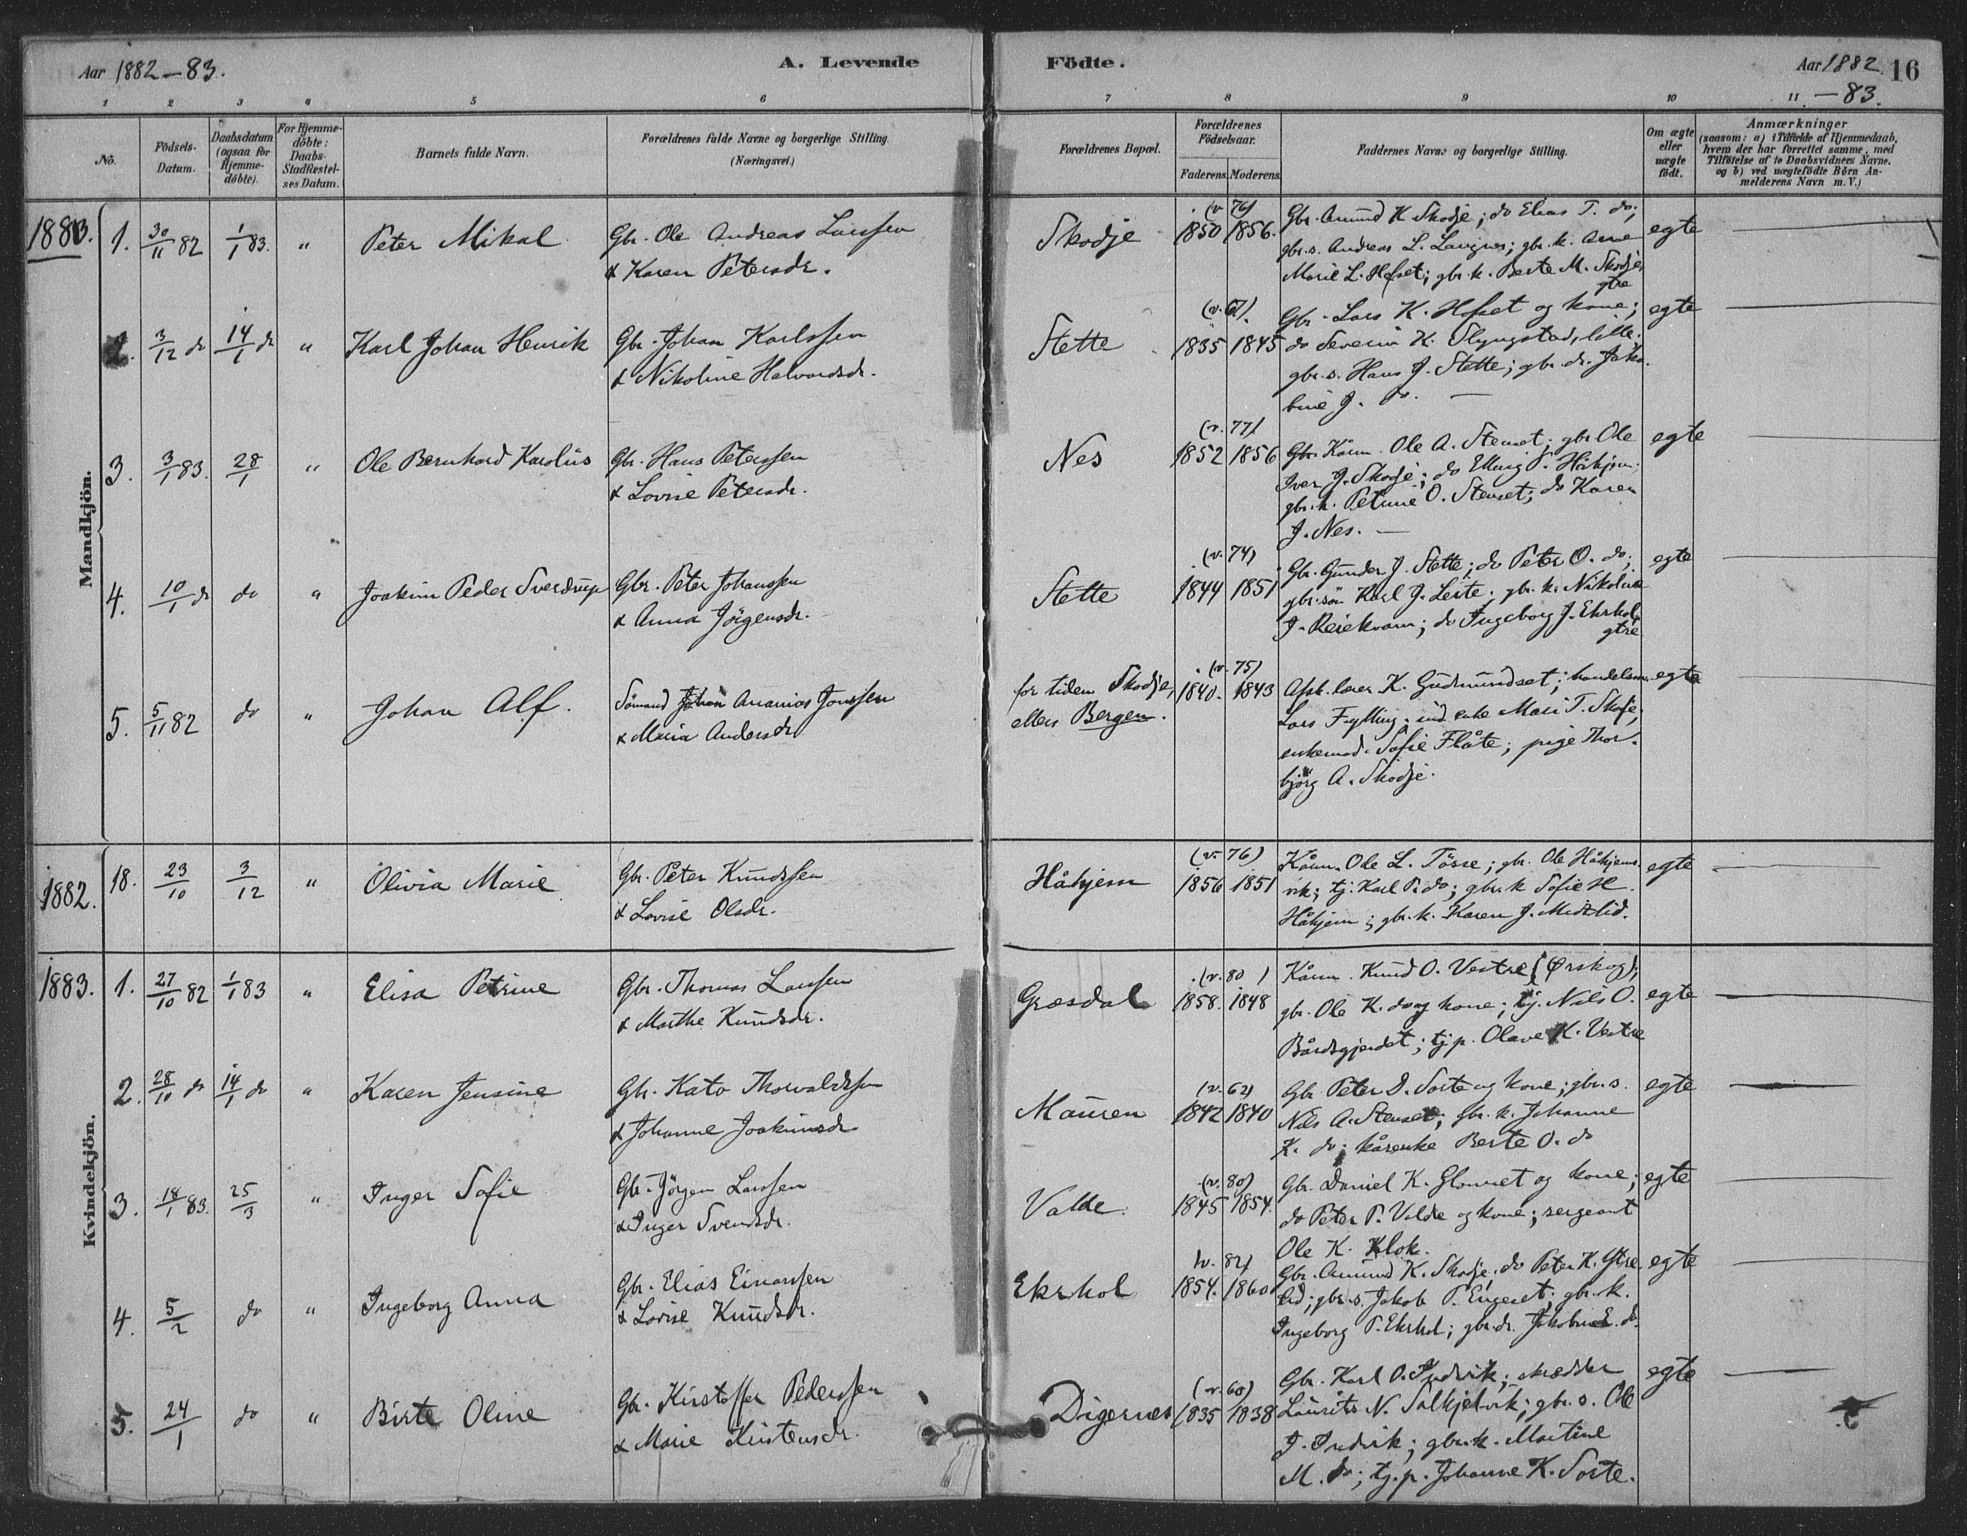 Aar 1882-83.
A. Levende
Födte.
Aar 1882 16
-83.
1 2 3 4 5 6 7 8 9 10 11
No.
Födsels-
Datum.
Daabsdatum
(ogsaa for
Hjemme-
döbte).
For Hjemme-
döbte:
Daabs-
Stadfæstel-
ses Datum.
Barnets fulde Navn.
Forældrenes fulde Navne og borgerlige Stilling.
(Næringsvei.)
Forældrenes Bopæl.
Forældrenes
Födselsaar.
Faderens. Moderens.
Faddernes Navne og borgerlige Stilling.
Om ægte
eller
uægte
født.
Anmærkninger
(saasom: a) i Tilfælde af Hjemmedaab,
hvem der har forrettet samme, med
Tilföielse af to Daabsvidners Navne,
og b) ved uægtefödte Börn An-
melderens Navn m. V.)
Mandkjön.
1883. 1. 30/11 82 1/1 83. " Peter Mikal
Gbr. Ole Andreas Larssen
& Karen Petersdr.
Skodje
(v. 76)
1850 1856.
Gbr. Amund K. Skodje; do Elias T. do;
gbr.s. Andreas L. Langnes; gbr. k. Anne
Marie L. Hofset; gbr. k. Berte M. Skodje
ytre
egte
2. 3/12 do 14/1 do " Karl Johan Henrik
Gbr. Johan Karlssen
& Nikoline Halvardsdr.
Stette
(v. 67).
1835 1845
Gbr. Lars K. Hofset og kone;
do Severin K. Slyngstad, lille;
gbr. s. Hans J. Stette; gbr. dr. Jako-
bine J. do. —
egte
3. 3/1 83. 28/1 " Ole Bernhard Karolus
Gbr. Hans Peterssen
& Lovise Petersdr.
Nes
(v. 77)
1852 1856
Gbr. Kårm. Ole A. Stenset; gbr. Ole
Iver J. Skodje; do Elling P. Håhjem.
gbr. k. Petrine O. Stenset; do Karen
J. Nes. —
egte
4. 10/1 do do " Joakim Peder Sverdrup
Gbr. Peter Johanssen
& Anna Jörgensdr.
Stette
(v. 74)
1844 1851
Gbr. Gunder J. Stette; do Peter O. do;
gbr. sön Karl J. Leite; gbr. k. Nikoline
J. Reiekvam; do Ingeborg J. Ekrhol
ytre
egte
5. 5/11 82 do " Johan Alf.
Sömand Johan Ananias Jonssen
& Maria Andersdr
for tiden Skodje,
ellers Bergen.
(v. 75)
1840. 1843
Afsk. lærer K. Gudmundset; handelsm.
Lars Fylling; ind. enke Mari T. Skoje;
enkemad. Sofie Flåte; pige Thor-
björg A. Skodje.
egte
1882. 18. 23/10 3/12 " Olivia Marie
Gbr. Peter Knudssen
& Lovise Olsdr.
Håhjem
(v. 76)
1856 1851
Kårm. Ole L. Tösse; gbr. Ole Håhjems-
vik; tj. Karl P. do; gbr. k Sofie H.
Håhjem; gbr. k. Karen J. Midtlid.
egte
Kvindekjön.
1883. 1. 27/10 82 1/1 83 " Elisa Petrine
Gbr. Thomas Larssen
& Marthe Knudsdr.
Græsdal
(v. 80)
1858. 1848
Kårm. Knud O. Vestre (Ørskog);
gbr. Ole K. do og kone; tj. Nils O.
Bårdsgjerdet; tj.p. Olave K. Vestre
egte
2. 28/10 do 14/1 do " Karen Jensine
Gbr. Kato Thorvaldssen
& Johanne Joakimsdr
Mauren
(v. 62)
1842 1840
Gbr Peter D. Sorte og kone; gbr. s.
Nils A. Stenset; gbr. k. Johanne
K. do; kårenke Berte O. do
egte
3. 18/1 83. 25/3 " Inger Sofie
Gbr. Jörgen Larssen
& Inger Svendsdr.
Valde.
(v. 80)
1845 1854.
Gbr. Daniel K. Glomset og kone;
do Peter P. Valde og kone; sergeant
Ole K. Klok.
egte
4. 5/2 do " Ingeborg Anna
Gbr. Elias Einarssen
& Lovise Knudsdr.
Ekrhol
(v. 82)
1854. 1860
Gbr. Amund K. Skodje; do Peter K. Ytre-
lid; gbr. s Jakob P. Engeset; gbr. k.
Ingeborg P. Ekrhol; gbr. dr. Jakobine E. do.
egte
5. 24/1 do " Birte Oline
Gbr. Kirstoffer Pederssen
& Marie Kirstensdr.
Digernes
(v. 60)
1835 1838
Gbr. Karl O. Indvik; skrædder
Laurits N. Solkjelvik; gbr. s. Ole
J. Indvik; gbr. k. Martine
M. do; tj.p. Johanne K. Sorte.
egte